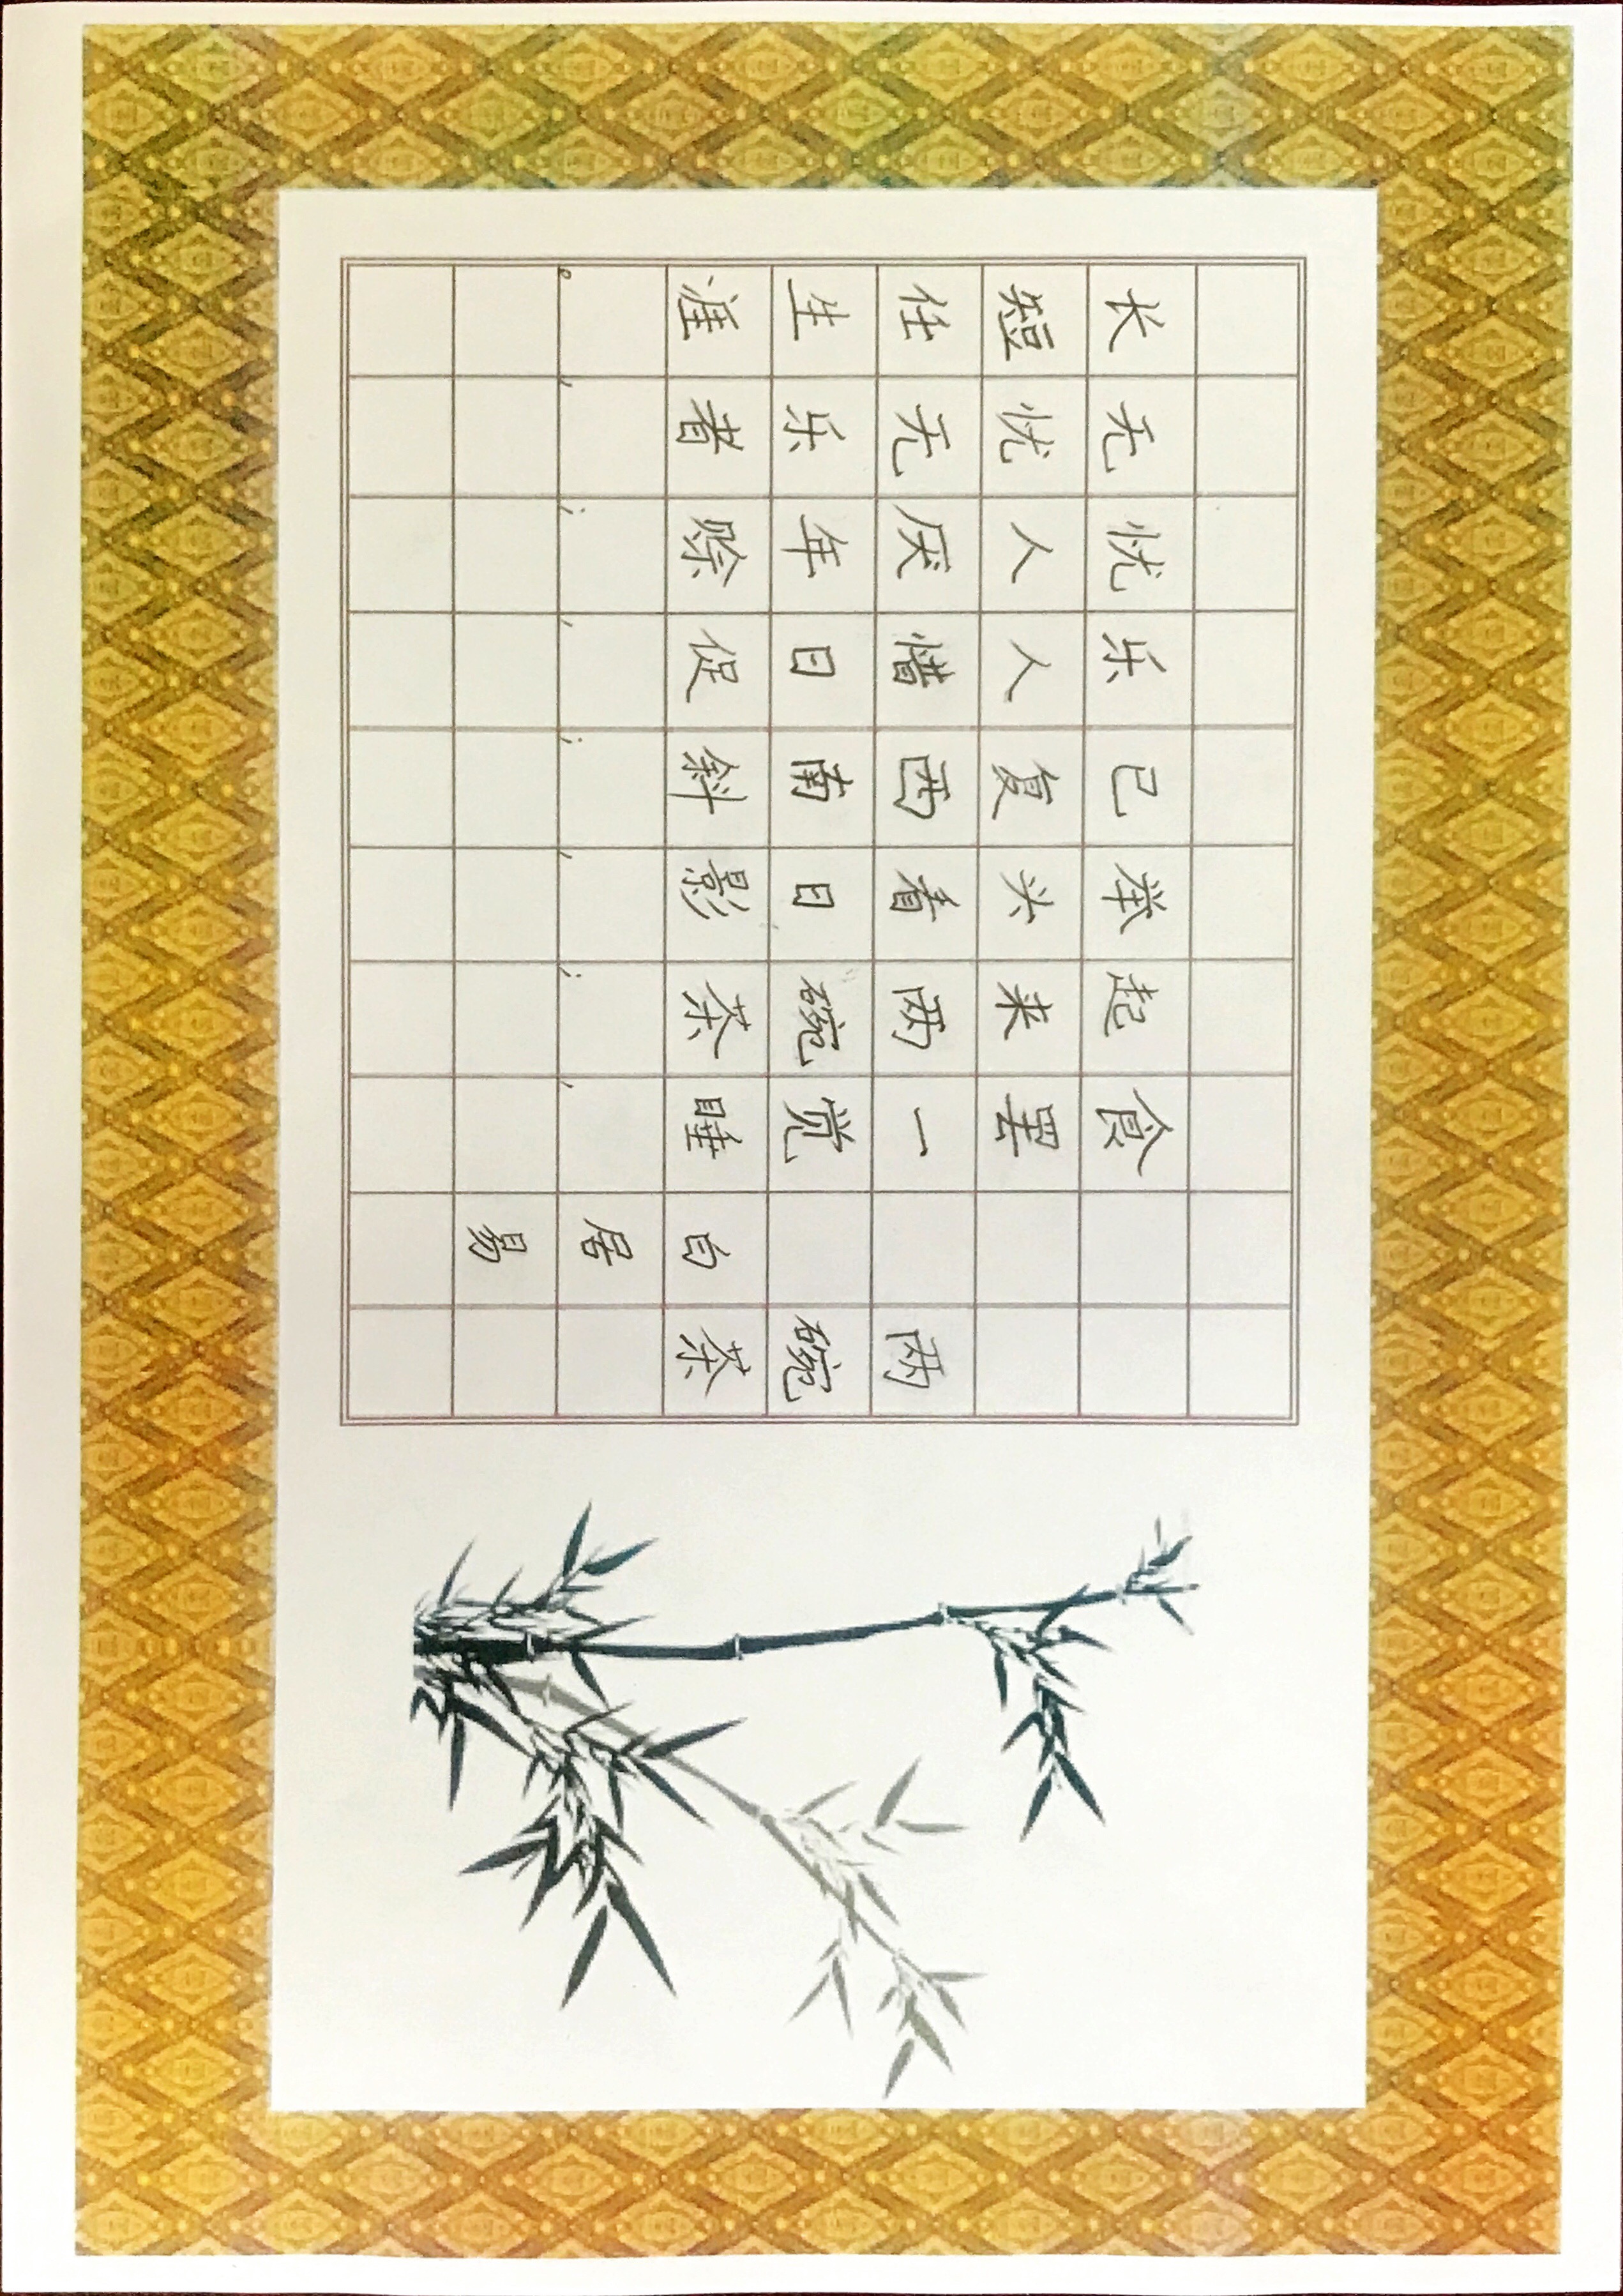 两碗茶
白居易
食罢一觉睡,
起来两碗茶;
举头看日影,
已复西南斜;
乐人惜日促,
忧人厌年赊;
无忧无乐者,
长短任生涯。